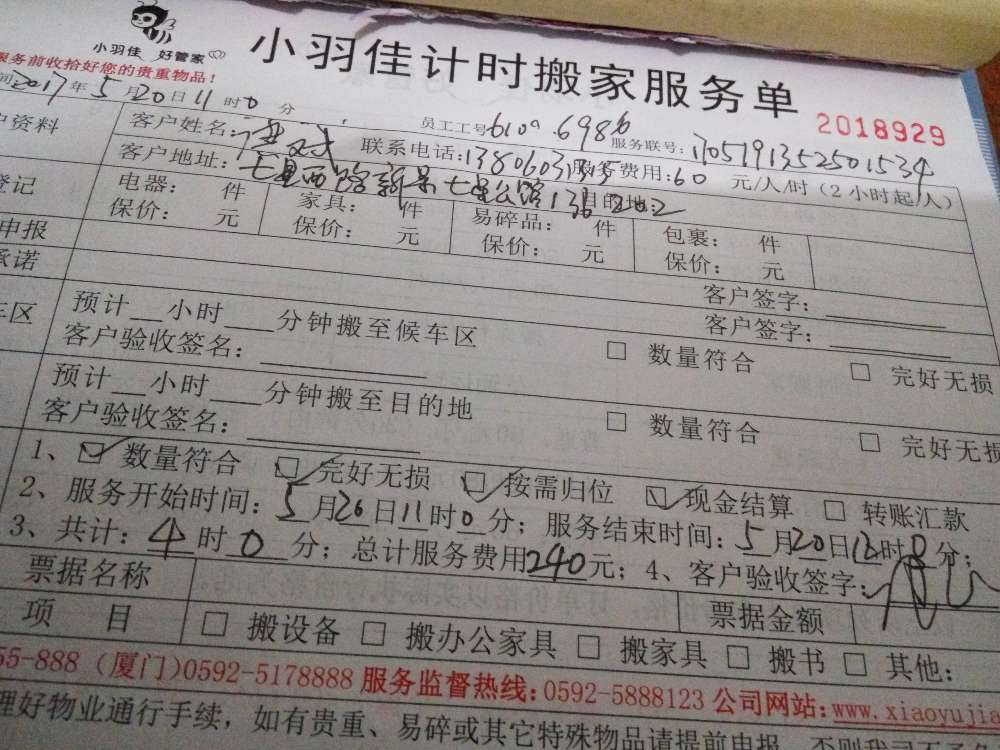 小羽佳 好管家
小羽佳计时搬家服务单
服务前收拾好您的贵重物品！
2018929
2017年5月20日11时0分 员工工号6109.6986 服务联号:170519135250 1534
户资料 客户姓名: 联系电话:1380603 服务费用:60元/人/时(2小时起/人)
客户地址:七星西路新景七星公馆 目的地:
登记 电器: 件 家具: 件 易碎品: 件 包裹: 件
保价: 元 保价: 元 保价: 元 保价: 元
申报 客户签字:
承诺 客户签字:
车区 预计__小时___分钟搬至候车区 □ 数量符合 □ 完好无损
客户验收签名:
预计__小时___分钟搬至目的地 □ 数量符合 □ 完好无损
客户验收签名:
1、☑ 数量符合 ☑ 完好无损 ☑ 按需归位 ☑ 现金结算 □ 转账汇款
2、服务开始时间:5月20日11时0分; 服务结束时间:5月20日时0分;
3、共计:4时0分; 总计服务费用240元; 4、客户验收签字:
票据名称 票据金额
项 目 □ 搬设备 □ 搬办公家具 □ 搬家具 □ 搬书 □ 其他:
55-888 (厦门)0592-5178888 服务监督热线:0592-5888123 公司网站:www.xiaoyujia
理好物业通行手续，如有贵重、易碎或其它特殊物品请提前申报，否则我司